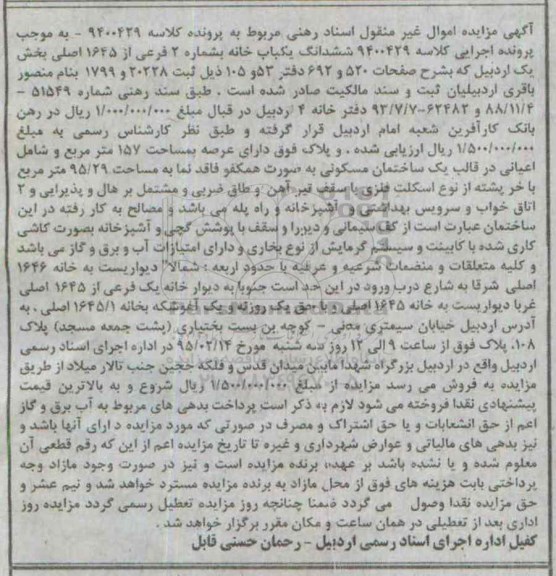 آگهی مزایده اموال غیر منقول اسناد رهنی مربوط به پرونده کلاسه ۹۴۰۰۴۲۹ - به موجب
پرونده اجرایی کلاسه ۹۴۰۰۴۲۹ ششدانگ یکباب خانه بشماره ۲ فرعی از ۱۶۴۵ اصلی بخش
یک اردبیل که بشرح صفحات ۵۲۰ و ۶۹۲ دفتر ۵۳و ۱۰۵ ذیل ثبت ۲۰۲۲۸ و ۱۷۹۹ بنام منصور
باقری اردبیلیان ثبت و سند مالکیت صادر شده است . طبق سند رهنی شماره ۵۱۵۴۹ -
۸۸/۱۱/۴ و ۶۲۴۸۲-۹۳/۷/۷ دفتر خانه ۴ اردبیل در قبال مبلغ ۱/۰۰۰/۰۰۰/۰۰۰ ریال در رهن
بانک کارآفرین شعبه امام اردبیل قرار گرفته و طبق نظر کارشناس رسمی به مبلغ
۱/۵۰۰/۰۰۰/۰۰۰ ریال ارزیابی شده . و پلاک فوق دارای عرصه بمساحت ۱۵۷ متر مربع و شامل
اعیانی در قالب یک ساختمان مسکونی به صورت همکفو فاقد نما به مساحت ۹۵/۲۹ متر مربع
با خر پشته از نوع اسکلت فلزی با سقف تیر آهن و طاق ضربی و مشتمل بر هال و پذیرایی و ۲
اتاق خواب و سرویس بهداشتی و آشپزخانه و راه پله می باشد و مصالح به کار رفته در این
ساختمان عبارت است از کف سیمانی و دیورا و سقف با پوشش گچی و آشپزخانه بصورت کاشی
کاری شده با کابینت و سیستم گرمایش از نوع بخاری و دارای امتیازات آب و برق و گاز می باشد
و کلیه متعلقات و منضمات شرعیه و عرفیه با حدود اربعه : شمالا" دیواریست به خانه ۱۶۴۶
اصلی شرقا به شارع درب ورود در این حد است جنوبا به دیوار خانه یک فرعی از ۱۶۴۵ اصلی
غربا دیواریست به خانه ۱۶۴۵ اصلی و با حق یک روزنه و یک آبغوشکه بخانه ۱۶۴۵/۱ اصلی . به
آدرس اردبیل خیابان سیمتری معنی - کوچه بن بست بختیاری (پشت جمعه مسجد) پلاک
۱۰۸. پلاک فوق از ساعت ۹ الی ۱۲ روز سه شنبه مورخ ۹۵/۰۲/۱۴ در اداره اجرای اسناد رسمی
اردبیل واقع در اردبیل بزرگراه شهدا مابین میدان قدس و فلکه ججین جنب تالار میلاد از طریق
مزایده به فروش می رسد مزایده از مبلغ ۱/۵۰۰/۰۰۰/۰۰۰ ریال شروع و به بالاترین قیمت
پیشنهادی نقدا فروخته می شود لازم به ذکر است پرداخت بدهی های مربوط به آب برق و گاز
اعم از حق انشعابات و یا حق اشتراک و مصرف در صورتی که مورد مزایده دارای آنها باشد و
نیز بدهی های مالیاتی و عوارض شهرداری و غیره تا تاریخ مزایده اعم از این که رقم قطعی آن
معلوم شده و یا نشده باشد بر عهده برنده مزایده است و نیز در صورت وجود مازاد وجه
پرداختی بابت هزینه های فوق از محل مازاد به برنده مزایده مسترد خواهد شد و نیم عشر و
حق مزایده نقدا وصول می گردد ضمنا چنانچه روز مزایده تعطیل رسمی گردد مزایده روز
اداری بعد از تعطیلی در همان ساعت و مکان مقرر برگزار خواهد شد .
کفیل اداره اجرای اسناد رسمی اردبیل - رحمان حسنی قابل